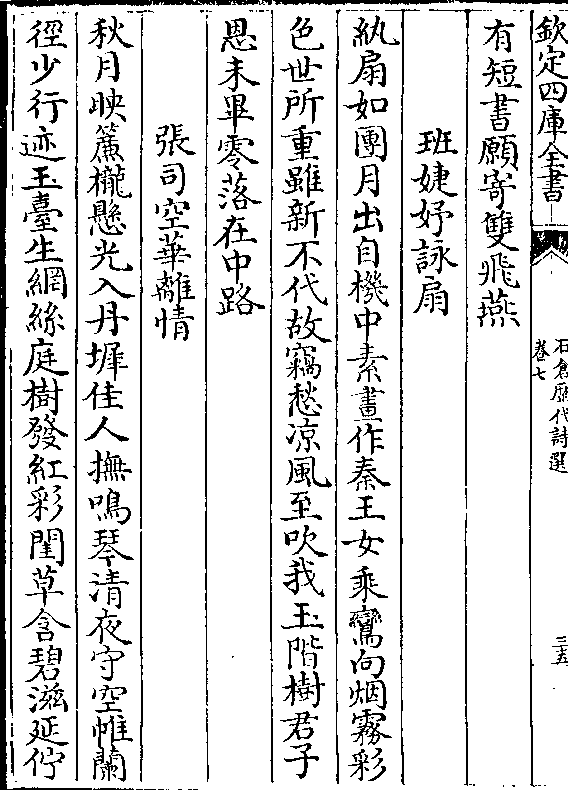 欽定四庫全書
石倉歷代詩選
卷七
三五
有短書願寄雙飛燕
班婕妤詠扇
紈扇如團月出自機中素畫作秦王女乘鸞向烟霧彩
色世所重雖新不代故竊愁凉風至吹我玉階樹君子
恩未畢零落在中路
張司空華離情
秋月映簾櫳懸光入丹墀佳人撫鳴琴清夜守空帷蘭
徑少行迹玉臺生網絲庭樹發紅彩閨草含碧滋延佇